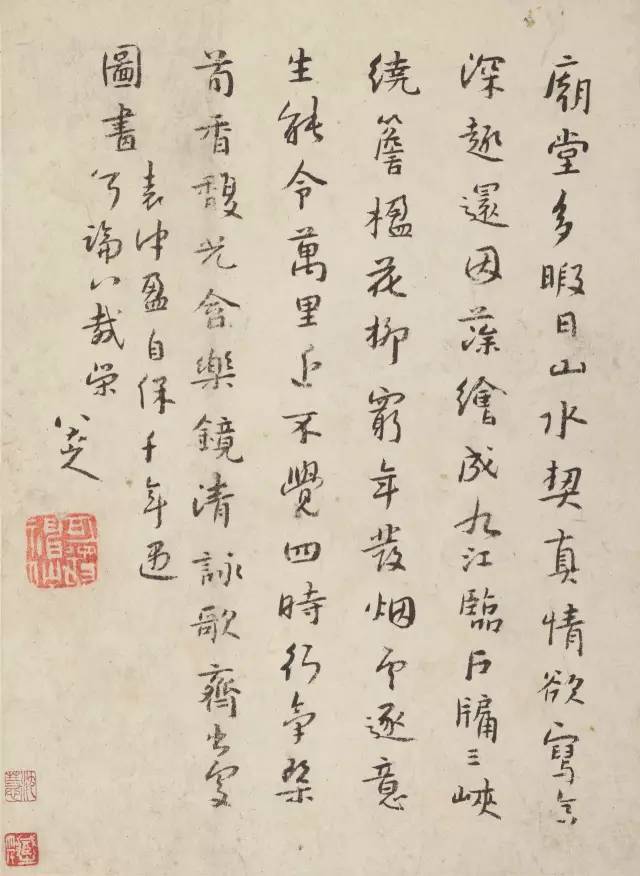 廟堂多暇日山水契真情欲寫高
深趣還因藻繪成九江臨户牖三峽
繞簷楹花柳窮年發烟雲逐意
生能令萬里近不覺四時行氣染
荀香馥光含樂鏡清詠歌齊出處
圖書表冲盈自保千年遇
何論八載榮
八大山人